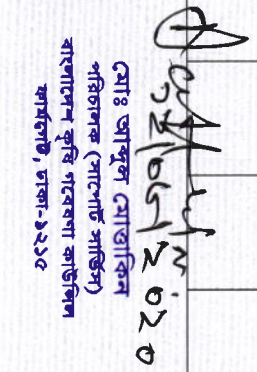 ২১/০৬/২০২০
মোঃ আব্দুল মোতালিব
পরিচালক (সাপোর্ট সার্ভিস)
বাংলাদেশ কৃষি গবেষণা কাউন্সিল
ফার্মগেট, ঢাকা-১২১৫